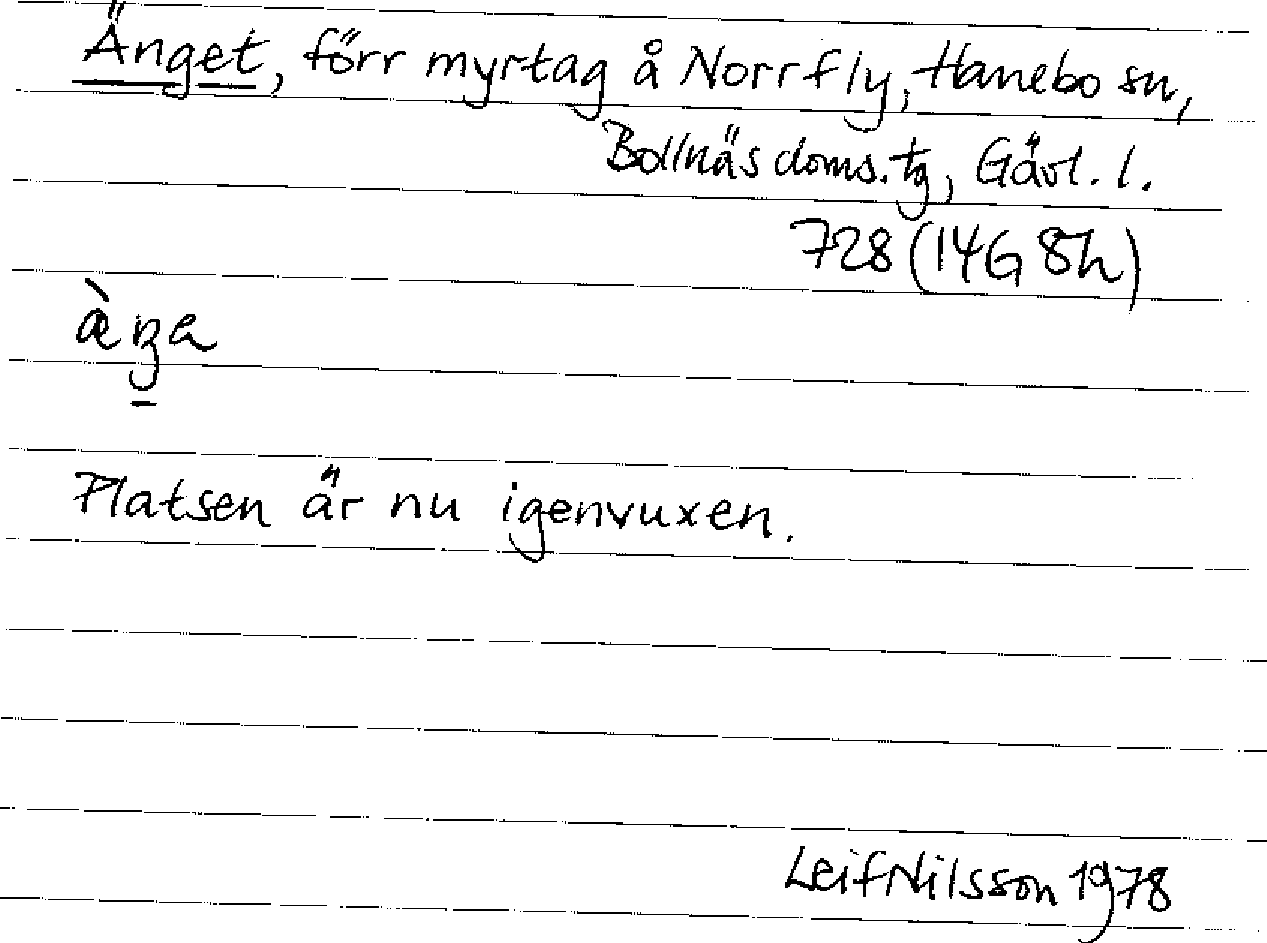 Änget, förr myrtag å Norrfly, Hanebo sn,
Bollnäs doms. tg, Gävl. l.
728 (14G 8h)
Platsen är nu igenvuxen.
Leif Nilsson 1978